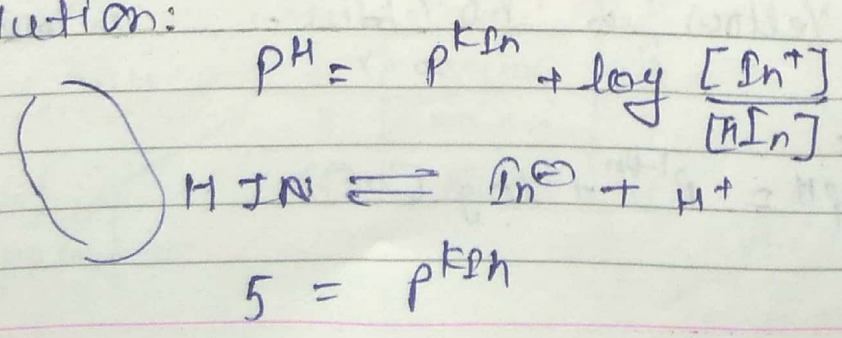 lution:
pH = pKIn + log [In+]/[HIn]
HIN ⇌ In⊖ + H+
5 = pKIn